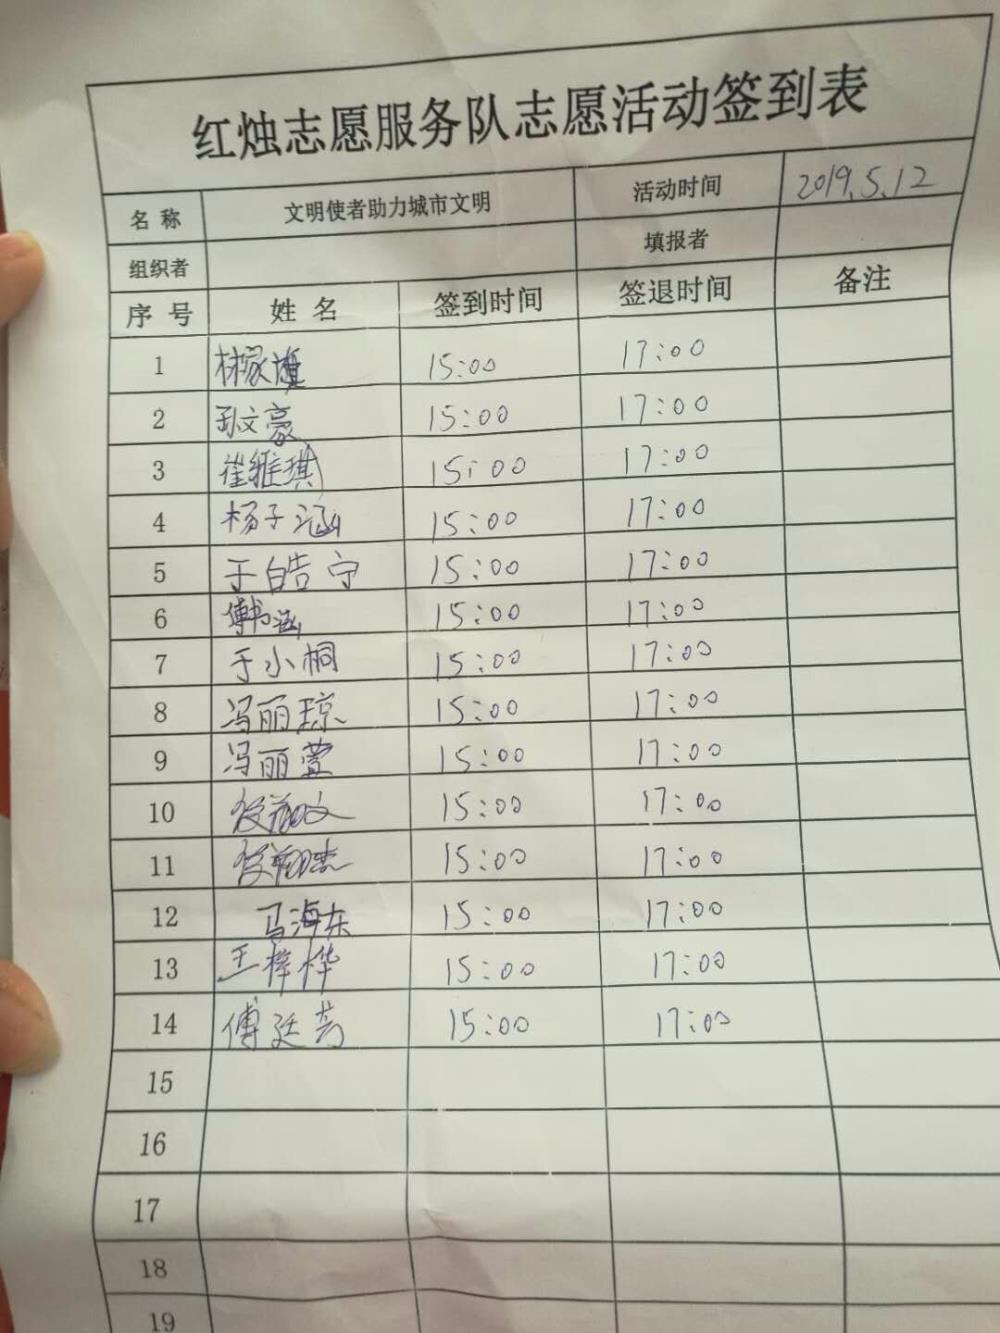 红烛志愿服务队志愿活动签到表
名 称 文明使者助力城市文明 活动时间 2019.5.12
组织者 填报者
序 号 姓 名 签到时间 签退时间 备注
1 林家旗 15:00 17:00
2 孙文豪 15:00 17:00
3 崔维琪 15:00 17:00
4 杨子涵 15:00 17:00
5 于皓宁 15:00 17:00
6 15:00 17:00
7 于小桐 15:00 17:00
8 冯丽琼 15:00 17:00
9 冯丽萱 15:00 17:00
10 15:00 17:00
11 15:00 17:00
12 马海东 15:00 17:00
13 王梓烨 15:00 17:00
14 傅廷芳 15:00 17:00
15
16
17
18
19